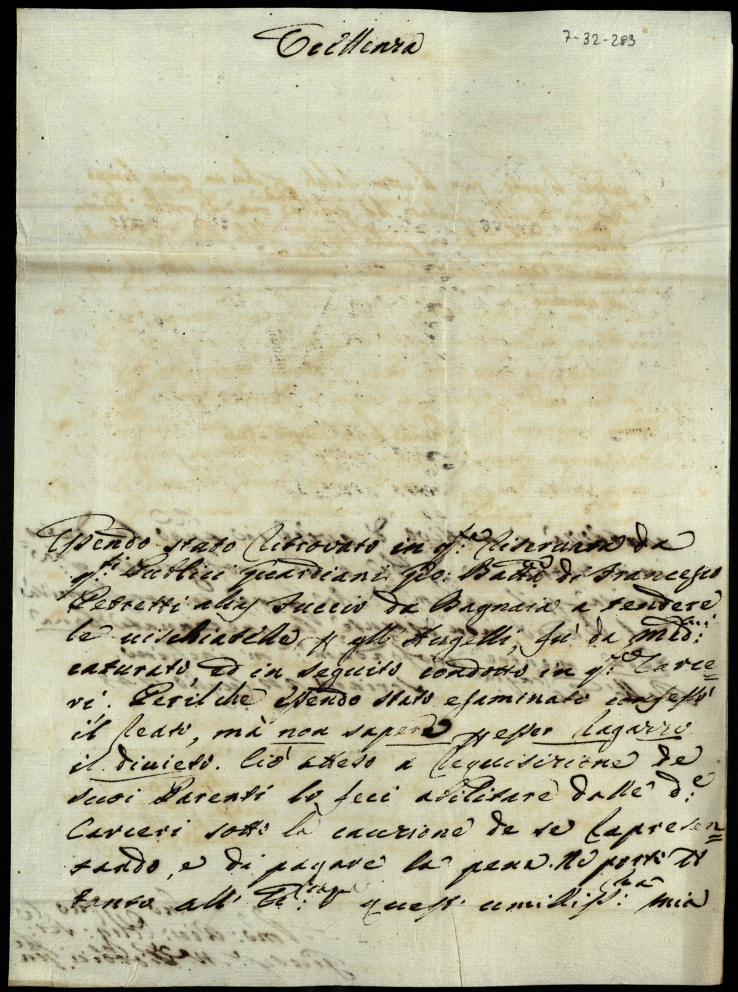 Eccellenza
7-32-283
Essendo stato ritrovato in q.ta riserva da
q.ti Publici Guardiani Gio: Batta di Francesco
Petretti alias Succio da Bagnaia a tendere
le uischiatelle gli Augelli, fu da med.mi
catturato, ed in seguito condotto in q.te Carce=
ri. Per il che essendo stato esaminato confessò
il reato, mà non sapere esser ragazzo
il diuieto. Ciò atteso a requisizione de
suoi Parenti lo feci abilitare dalle d.e
Carceri sotto la cauzione de se rapresen=
tando, e di pagare la pena.
tanto all' questi umiliss: mia